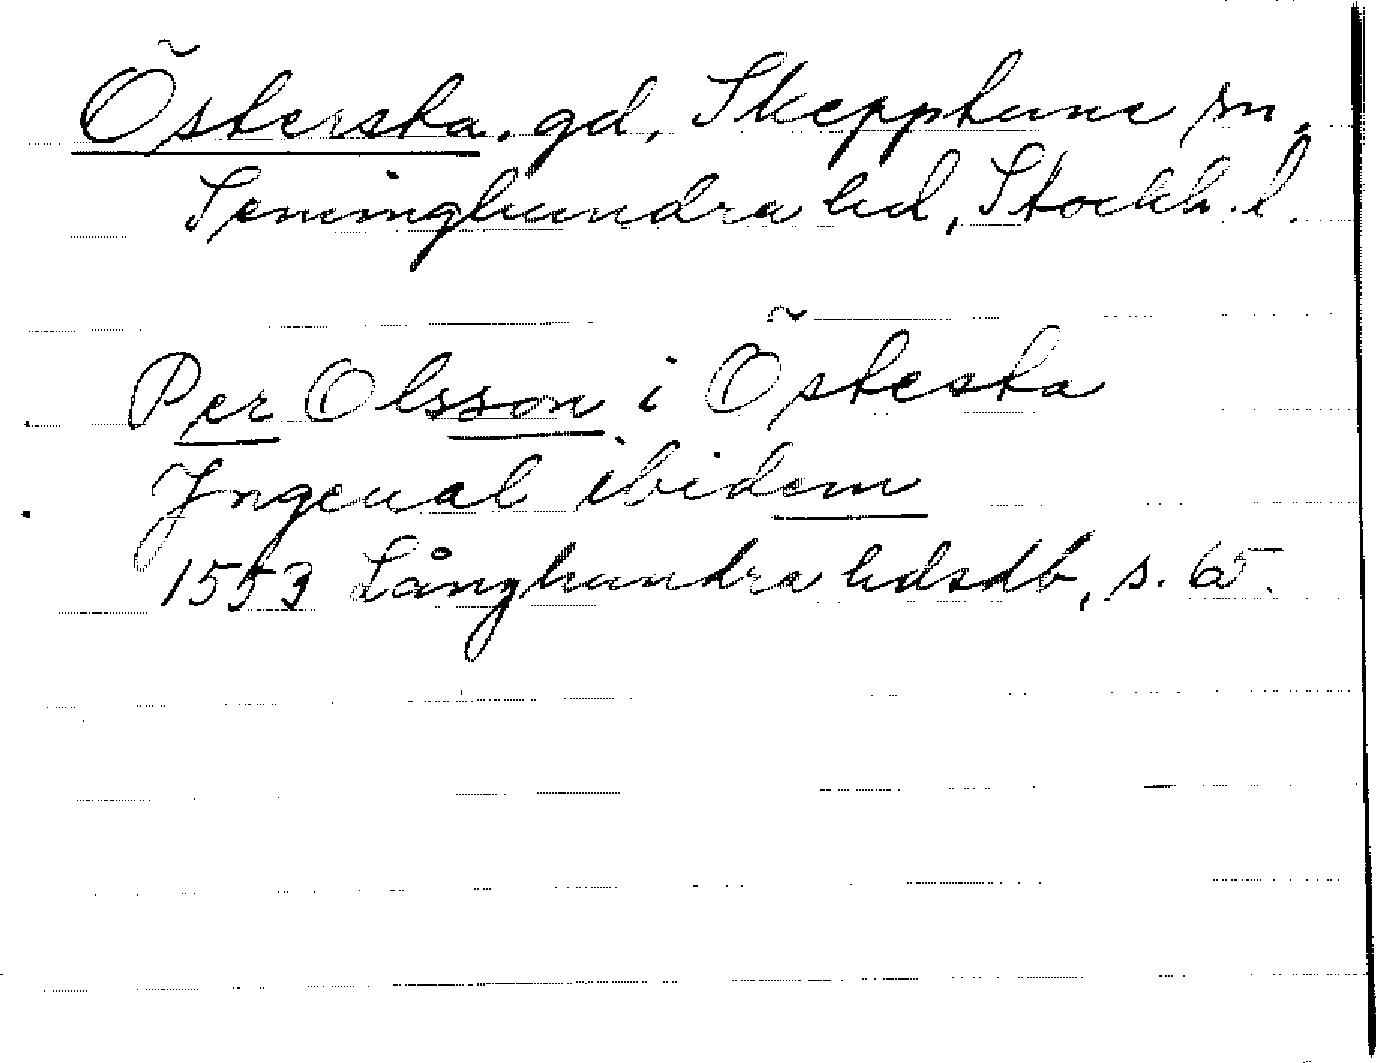 Östersta, gd, Skepptuna sn,
Seminghundra hd, Stockh. l.
Per Olsson i Östesta
Yngeual ibidem
1553 Långhundra hdsdb, s. 65.